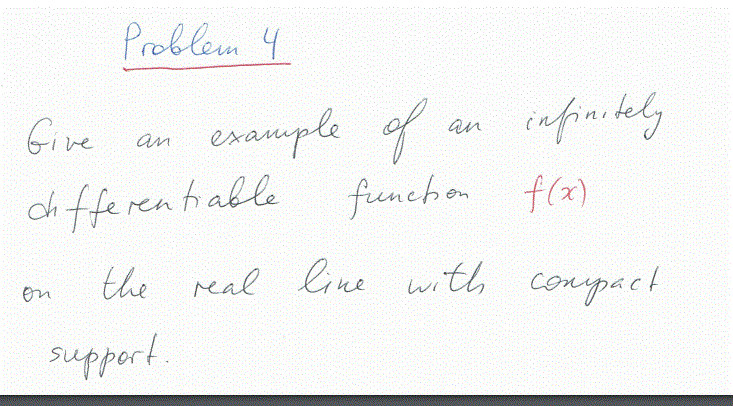 Problem 4
Give an example of an infinitely
differentiable function f(x)
on the real line with compact
support.